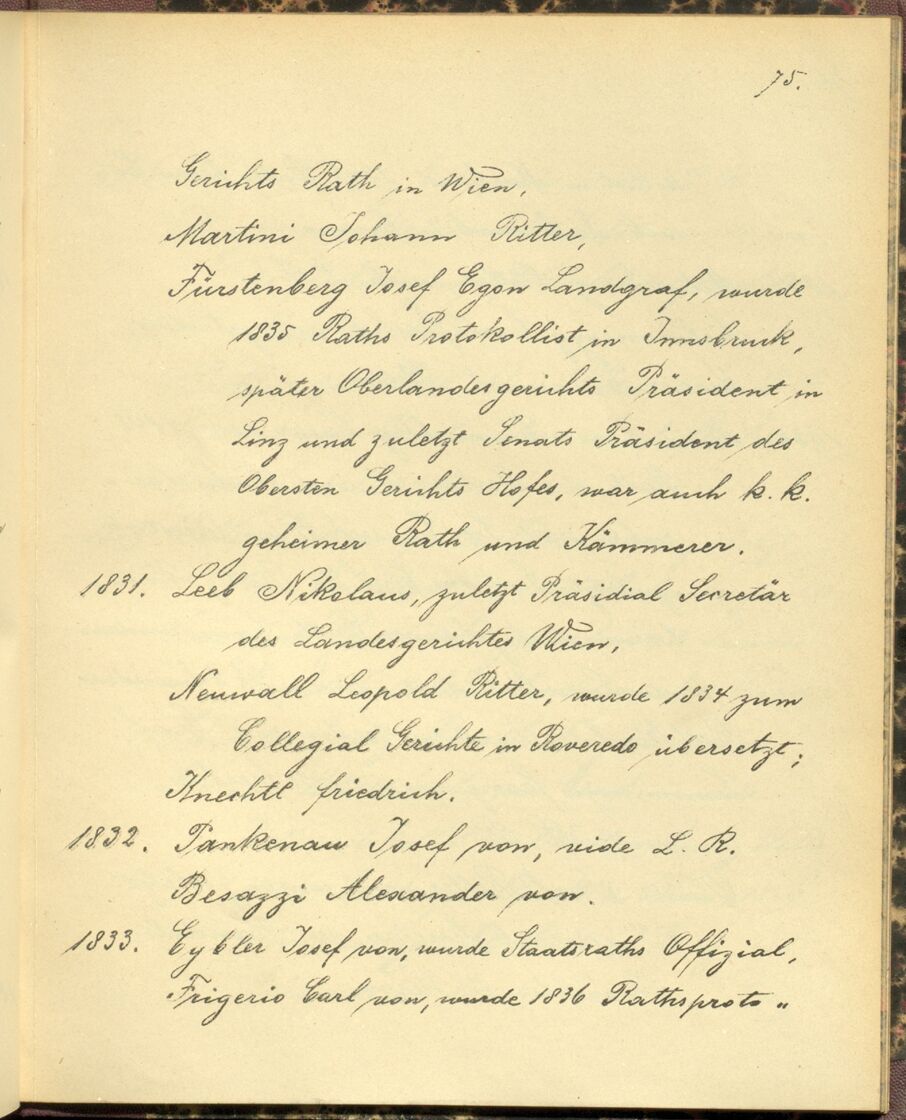 75.
Gerichts Rath in Wien,
Martini Johann Ritter,
Fürstenberg Josef Egon Landgraf, wurde
1835 Raths Protokollist in Innsbruck,
später Oberlandesgerichts Präsident in
Linz und zuletzt Senats Präsident des
Obersten Gerichts Hofes, war auch k. k.
geheimer Rath und Kämmerer.
1831. Leeb Nikolaus, zuletzt Präsidial Secretär
des Landesgerichtes Wien,
Neuwall Leopold Ritter, wurde 1834 zum
Collegial Gerichte in Roveredo übersetzt;
Knechtl friedrich.
1832. Pankenau Josef von, vide L. R.
Besazzi Alexander von.
1833. Eybler Josef von, wurde Staatsraths Offizial,
Frigerio Carl von, wurde 1836 Rathsproto„